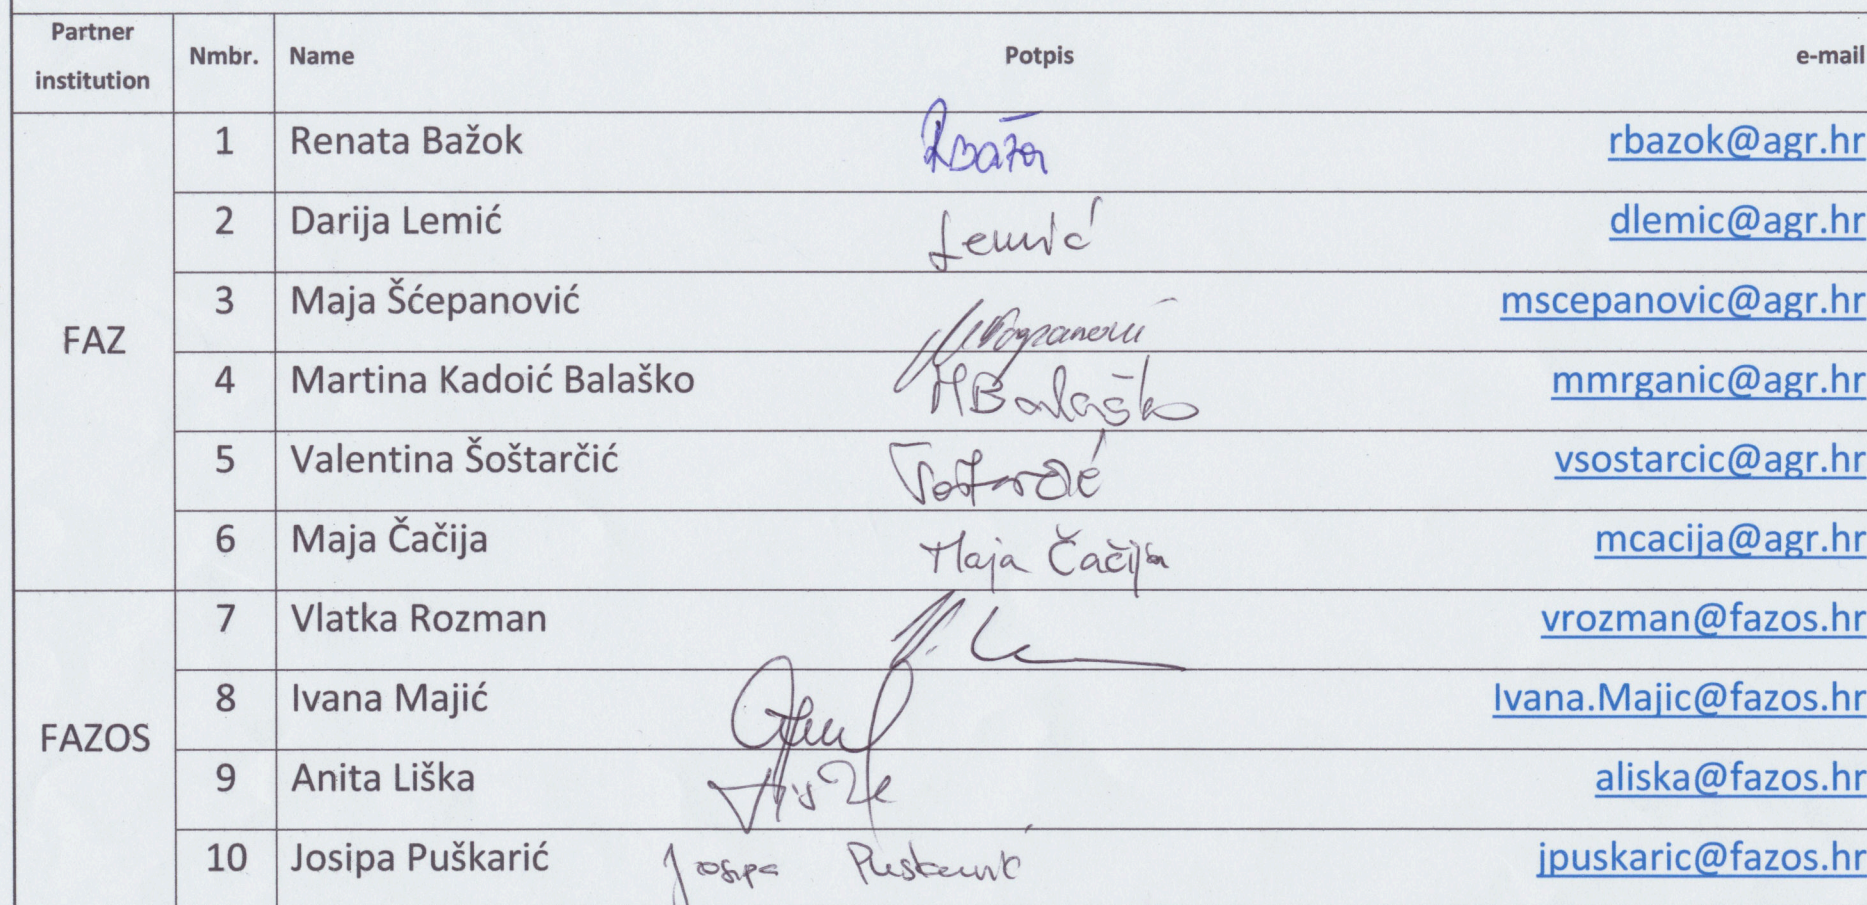 Partner institution Nmbr. Name Potpis e-mail
FAZ
1 Renata Bažok rbazok@agr.hr
2 Darija Lemić Lemić dlemic@agr.hr
3 Maja Šćepanović mscepanovic@agr.hr
4 Martina Kadoić Balaško MBalaško mmrganic@agr.hr
5 Valentina Šoštarčić vsostarcic@agr.hr
6 Maja Čačija Maja Čačija mcacija@agr.hr
FAZOS
7 Vlatka Rozman vrozman@fazos.hr
8 Ivana Majić Ivana.Majic@fazos.hr
9 Anita Liška aliska@fazos.hr
10 Josipa Puškarić Josipa Puškarić jpuskaric@fazos.hr